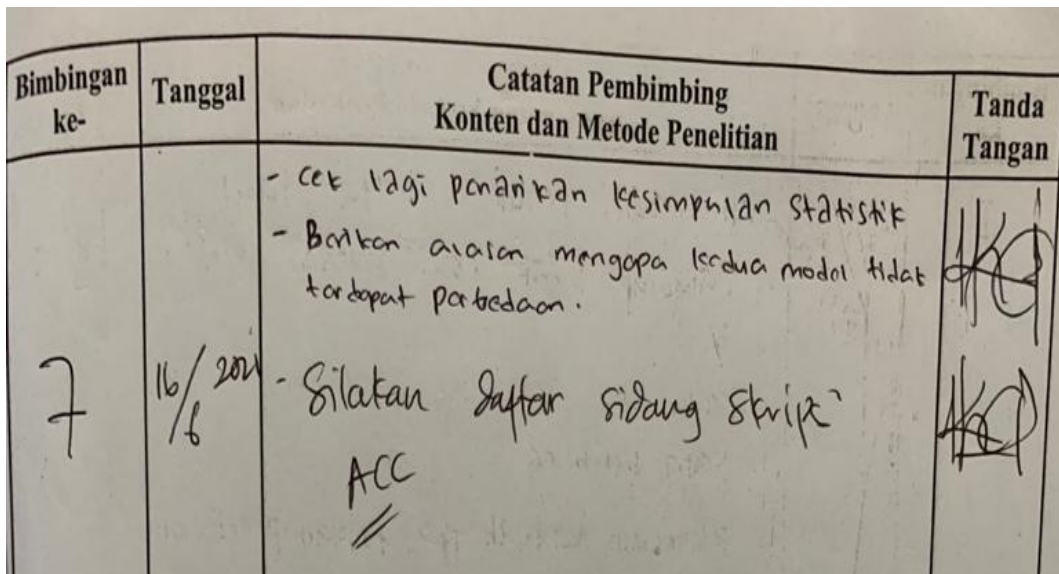 Bimbingan ke-
Tanggal
Catatan Pembimbing
Konten dan Metode Penelitian
Tanda Tangan
- cek lagi penarikan kesimpulan statistik
- Berikan alasan mengapa kedua model tidak
terdapat perbedaan.
7
16/6 2021
- Silakan daftar sidang skripsi
ACC